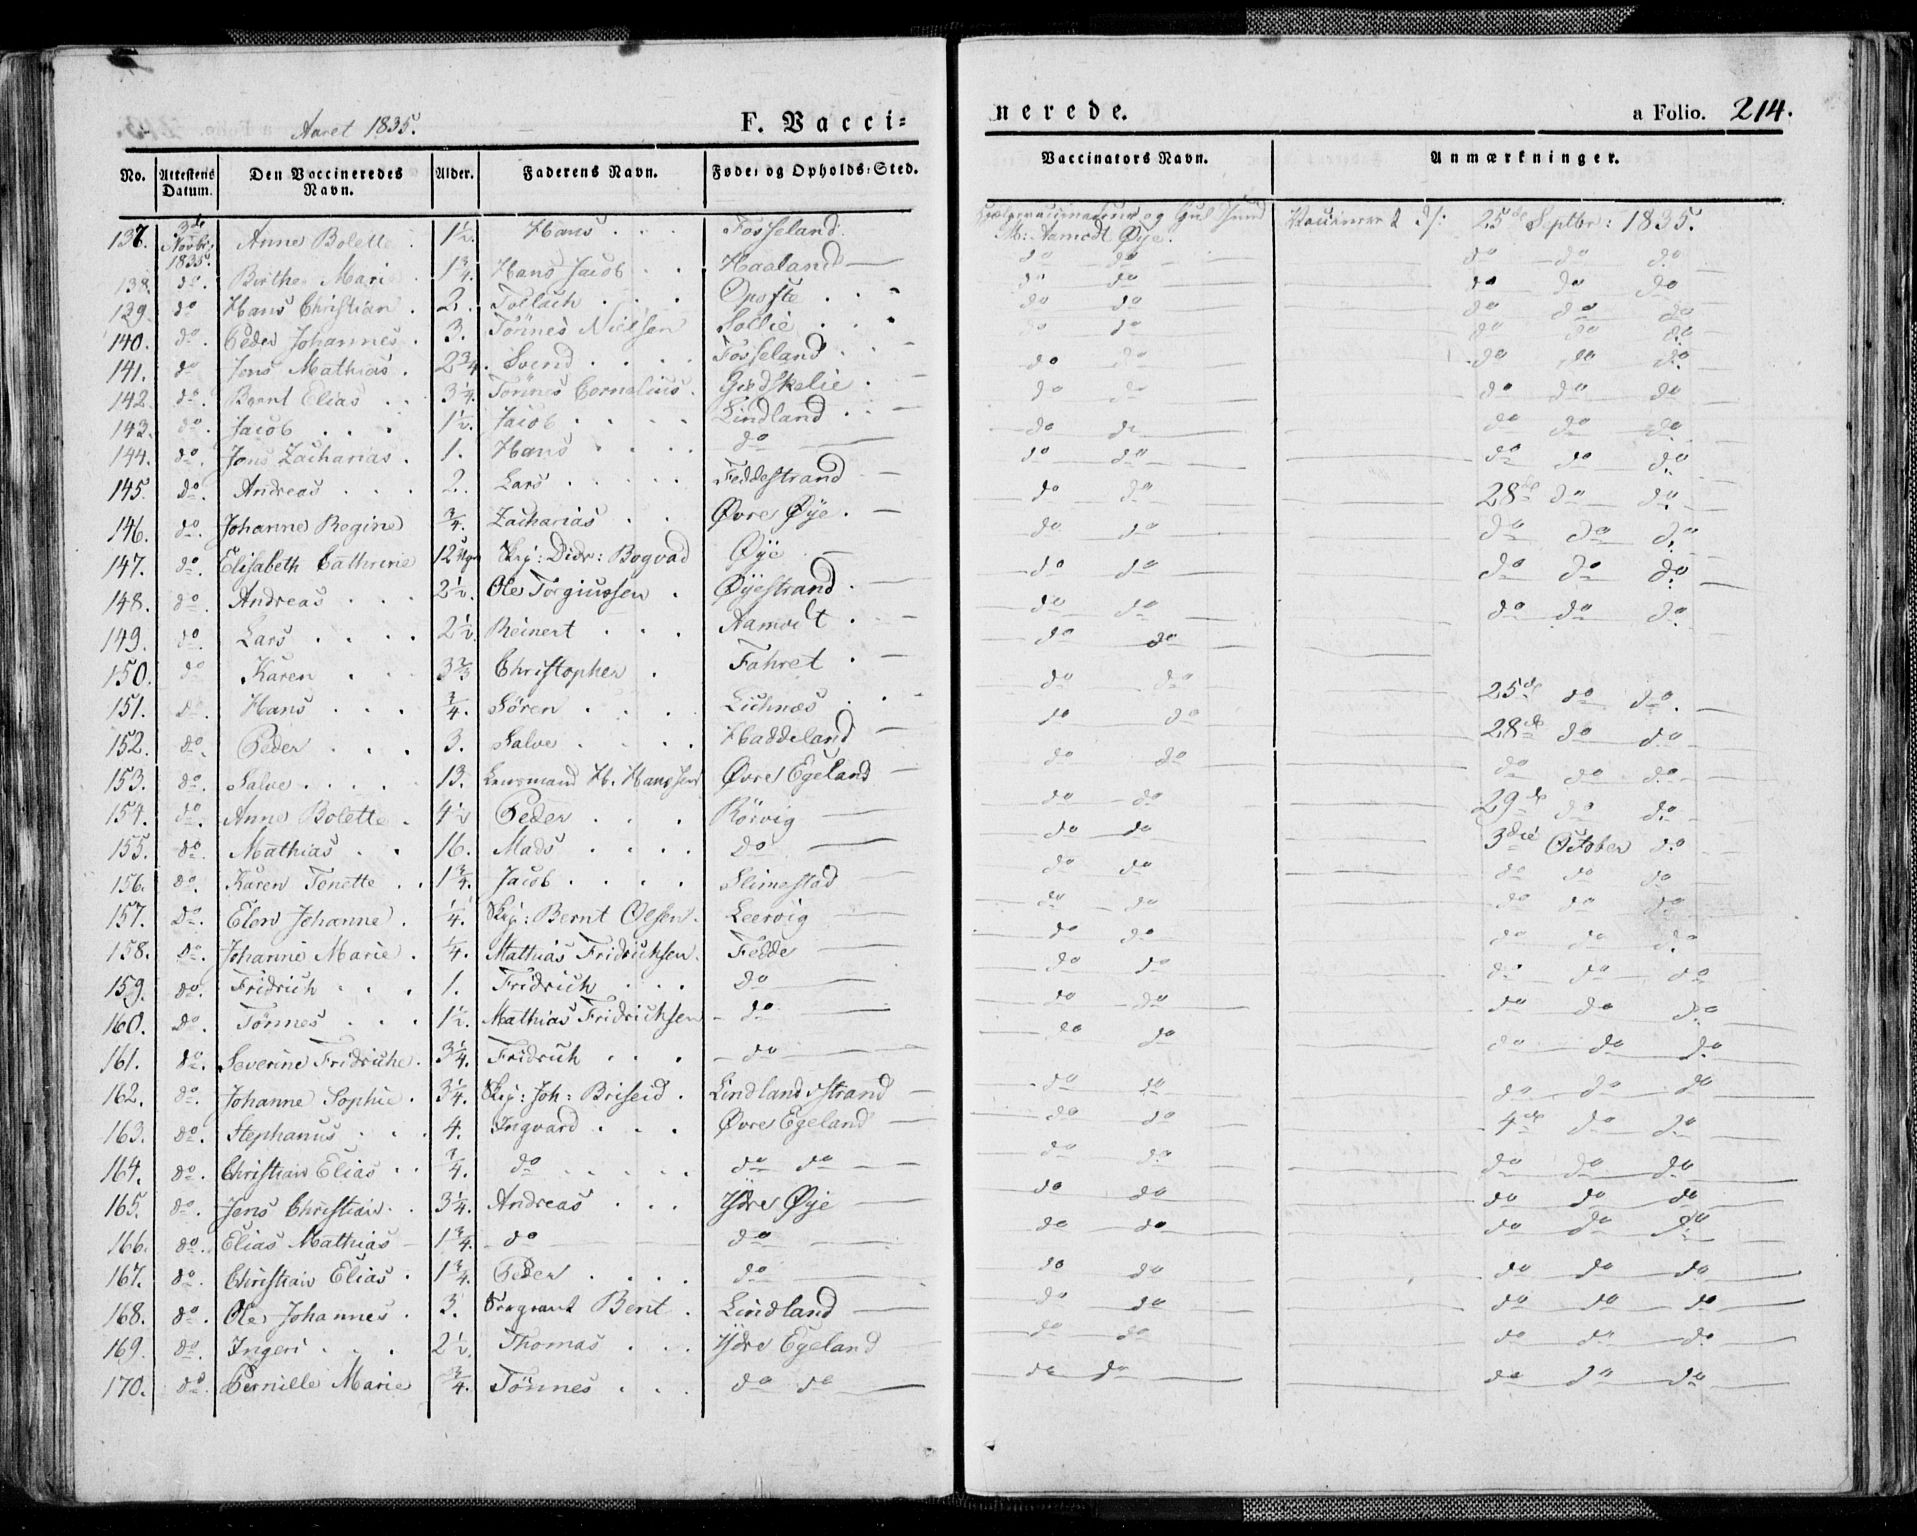 Aaret 1835.
F. Vacci=
nerede.
a Folio. 214.
No. Attestens Datum. Den Vaccineredes Navn. Alder. Faderens Navn. Føde= og Opholds=Sted. Vaccinators Navn. Anmærkninger.
137. 3die Novbr: 1835. Anne Bolette 1½. Hans Fosseland. og M: Aamodt Øye. Vaccineret d: 25de Septbr: 1835.
138. do. Birthe Marie 1¾. Hans Jacob Haaland do do do do do
139. do Hans Christian 2. Tollach Opofte do do do do do
140. do. Peder Johannes 3. Tönnes Nielsen Sollie do do do do do
141. do Jens Mathias 2¾. Svend Fosseland do do do do do
142. do. Bernt Elias 3¼. Tönnes Cornelius Gjedskelie do do do do do
143. do. Jacob 1½. Jacob Lindland do do do do do
144. do. Jens Zacharias 1. Hans do do do do do do
145. do. Andreas 2. Lars Feddestrand do do 28de do do
146. do. Johanne Regine ¾. Zacharias Øvre Øye do do do do do
147. do. Elisabeth Cathrine 12 Skp: Didr: Bogvad Øye do do do do do
148. do. Andreas 2½. Ole Torgiussen Øyestrand do do do do do
149. do. Lars 2½. Reinert Aamodt do do
150. do Karen 3⅔ Christopher Fahret do do 25de do do
151. do. Hans ¾. Sören Lichnæs do do 28de do do
152. do. Peder 3. Salve Haddeland do do do do do
153. do. Salve 13. Lensmand H. Hanssen Øvre Egeland do do 29de do do
154. do. Anne Bolette 4½ Peder Rörvig do do 3die October do
155. do. Mathias 16. Mads do do do do do do
156. do. Karen Tonette 1¾. Jacob Slimestad do do do do do
157. do. Elen Johanne ¼. Skp: Bernt Olsen Leervig do do do do do
158. do. Johanne Marie ¼. Mathias Fridrichsen Fedde do do do do do
159. do. Fridrich 1. Fridrich do do do do do do
160. do. Tönnes 1½. Mathias Fridrichsen do do do do do do
161. do. Severine Fridriche 3¼. Fridrich do do do do do do
162. do. Johanne Sophie 3¼. Skp: Joh: Briseid Lindlandsstrand do do 4de do do
163. do. Stephanus 4. Ingvard Øvre Egeland do do do do do
164. do. Christian Elias ¾. do do do do do do do do
165. do. Jens Christian 3¼. Andreas Ydre Øye do do do do do
166. do. Elias Mathias 1¾. do do do do do do do
167. do. Christian Elias 1¾. Peder do do do do do do
168. do. Ole Johannes 3. Sergeant Berit Lindland do do do do do
169. do. Ingeri 2½. Thomas Ydre Egeland do do do do do
170. do. Pernille Marie ¾. Tönnes do do do do do do do